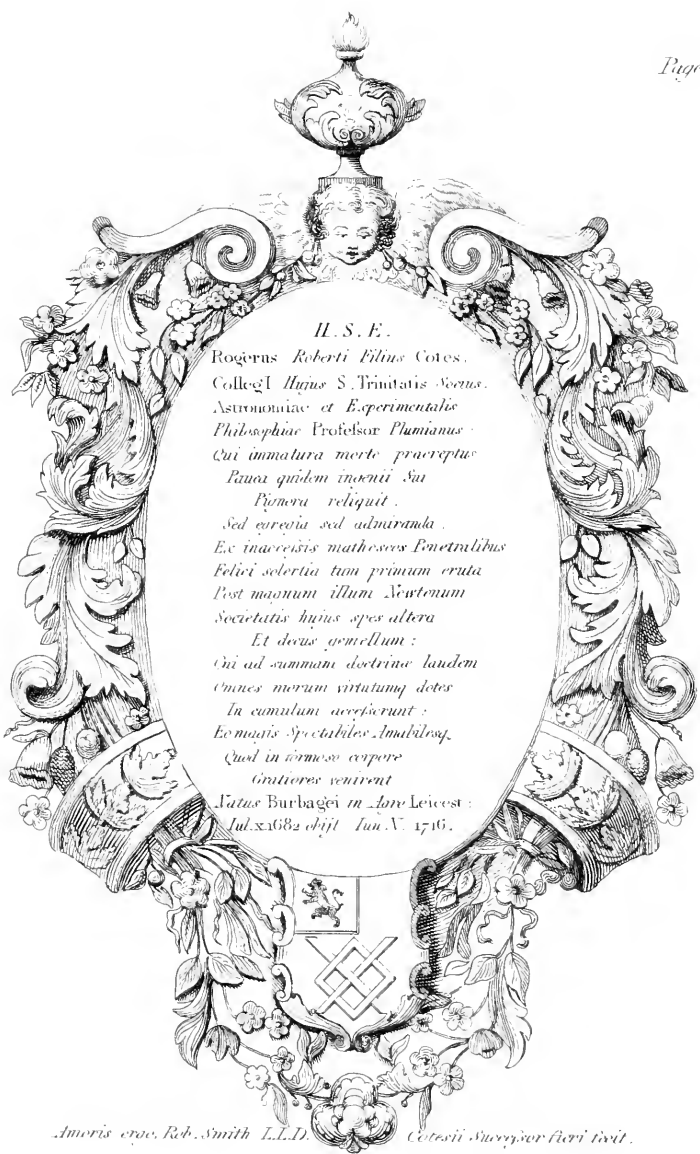 Page
H. S. E.
Rogerus Roberti Filius Cotes.
CollegI Hujus S. Trinitatis Socius.
Astronomiae et Experimentalis
Philosophiae Profeſsor Plumianus:
Qui immatura morte praereptus
Pauca quidem ingenii Sui
Pignora reliquit.
Sed egregia sed admiranda.
Ex inacceſsis matheseos Penetralibus
Felici solertia tum primum eruta
Post magnum illum Newtonum
Societatis hujus spes altera
Et decus gemellum:
Cui ad summam doctrinæ laudem
Omnes morum virtutumq dotes
In cumulum acceſserunt:
Eo magis Spectabiles Amabilesq
Quod in formoso corpore
Gratiores venirent
Natus Burbagei in Agro Leicest:
Jul. X 1682 obijt Jun. V. 1716.
Amoris ergo. Rob. Smith L.L.D. Cotesii Succeſsor fieri fecit.